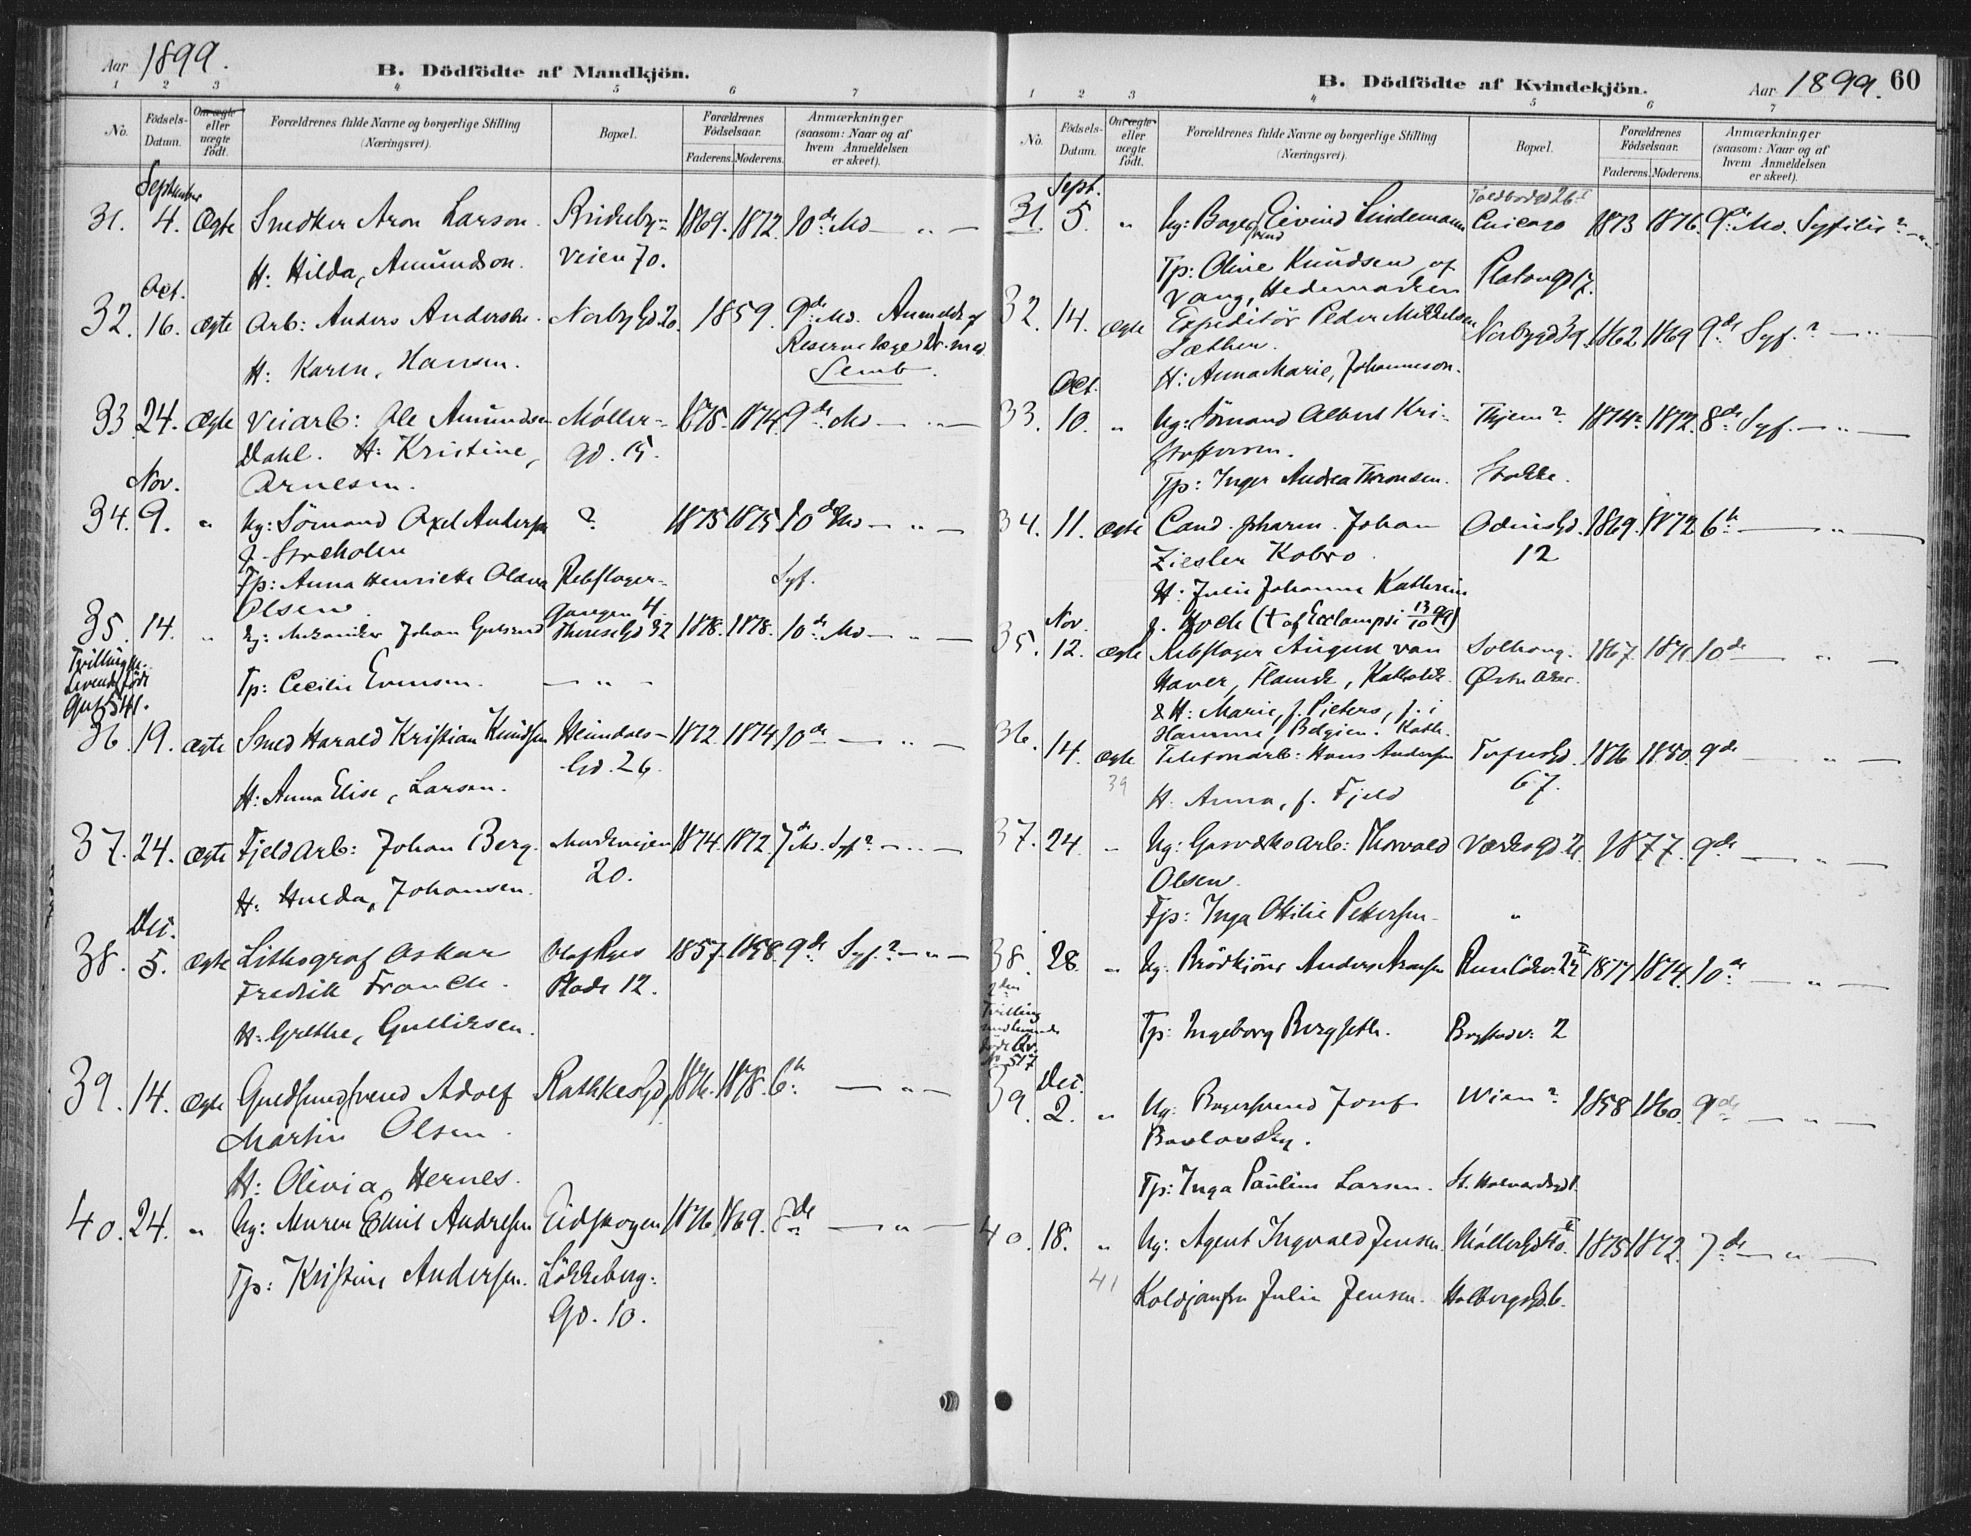 Aar 1899.
B. Dödfödte af Mandkjön.
1 2 3 4 5 6 7
No. Födsels-Datum. Om ægte eller uægte födt. Forældrenes fulde Navne og borgerlige Stilling (Næringsvei). Bopæl. Forældrenes Födselsaar. Faderens. Moderens. Anmærkninger (saasom: Naar og af hvem Anmeldelsen er skeet).
September
31. 4. Ægte Snedker Aron Larson. 1869. 1872. 10de Md — " —
H: Hilda, Amundson. Veien 70.
Oct.
32. 16. Ægte Arb: Anders Andersen. Norbygd 20. 1859. 9de Md. Anmeldt af
H: Karen, Hansen. Reservelæge Dr. med
Semb.
33. 24. Ægte Veiarb: Ole Amundsen Møller- 1875. 1874. 9de Md — " —
Dahl. H: Kristine, gd. 15.
Arnesen.
Nov.
34. 9. " Ug: Sömand Axel Andersen ? 1875 1875 10de Md — " —
f. Stocholm
Tp: Anna Henriette Olava Rebslager- Syf.
Olsen. gangen 4.
35. 14. " Ug: Mekaniker Johan Theresegd 32 1878. 1878. 10de Md — " —
Tvilling
Levende födt
Gut 541.
Tp: Cecilie Evensen. — " —
36. 19. Ægte Smed Harald Kristian Knudsen Heimdals- 1872. 1874 10de — " —
Gd. 26.
H: Anna Elise, Larsen.
37. 24. Ægte Fjeldarb: Johan Berg. Markveien 1874. 1872. 7de Md. Syf? — " —
20.
H: Hulda, Johansen.
Dec.
38. 5. Ægte Lithograf Oskar Olaf Ryes 1857. 1858. 9de Syf.? — " —
Fredrik Franck. Plads 12.
H: Grethe, Gulliksen.
39. 14. Ægte Guldsmedsvend Adolf Rathkesgd 1876. 1878. 6te — " —
Martin Olsen.
H: Olivia, Hernes.
40. 24. " Ug: Murer Emil Andresen Eidskogen 1876. 1869. — " —
Tp: Kristine Andersen. Løkkeberg:
Gd. 10.
B. Dödfödte af Kvindekjön. Aar 1899. 60
1 2 3 4 5 6 7
No. Födsels-Datum. Om ægte eller uægte födt. Forældrenes fulde Navne og borgerlige Stilling (Næringsvei). Bopæl. Forældrenes Födselsaar. Faderens. Moderens. Anmærkninger (saasom: Naar og af hvem Anmeldelsen er skeet).
Sept. Toldbodgd 26
31. 5. " Ug: Bagersvend Eivind Lindemann Chicago 1873 1876. 9de Md. Syfilis? — " —
Tp: Oline Knudsen af Platougd 17.
Vang, Hedemarken
32. 14. Ægte Expeditör Peder Mikkelsen Norbygd 39. 1862. 1869 9de Syf.? — " —
Sæther.
H: Anna Marie, Johanneson.
Oct.
33. 10. " Ug: Sömand Albert Kri- Hjem? 1874? 1872. 8de Syf. — " —
stoffersen.
Tp: Inger Andrea Thronsen. Stokke.
34. 11. Ægte Cand. pharm. Johan Odinsgd. 1869. 1872 6te — " —
Ziesler Kobro. 12
H: Julie Johanne Kathrine
f. Hoch († af Ecclampsi 13/10 99)
Nov.
35. 12. Ægte Rebslager August van Solhoug. 1867. 1871. 10de — " —
Haver, Flamsk, Katholik. Østre Aker.
& H: Marie, f. Pieters, f. i
Hamme, Belgien. Kath.
36. 14. Ægte Telefonarb: Hans Andersen Toftesgd. 1876 1880. 9de — " —
39 67.
H: Anna, f. Fjeld
37. 24. " Ug: Gasværksarb: Thorvald Værksgd 1877. 9de — " —
Olsen.
Tp: Inga Otilie Pettersen. "
38. 28. " Ug. Brödkjörer Anders 1877 1874. 10de — " —
2den
Tvilling
födt
517
Tp: Ingeborg Bergseth. Bogstadv: 2
Dec.
39. 2. " Ug: Bagersvend Josef Wien? 1858 1860. 9de — " —
Pavlovsky.
Tp: Inga Pauline Larsen. St. Halvardsgd 1.
40. 18. " Ug: Agent Ingvald Jensen. 1875 1872. 7de — " —
41 Koldjomfru Julie Jensen. Holbergsgd. 6.